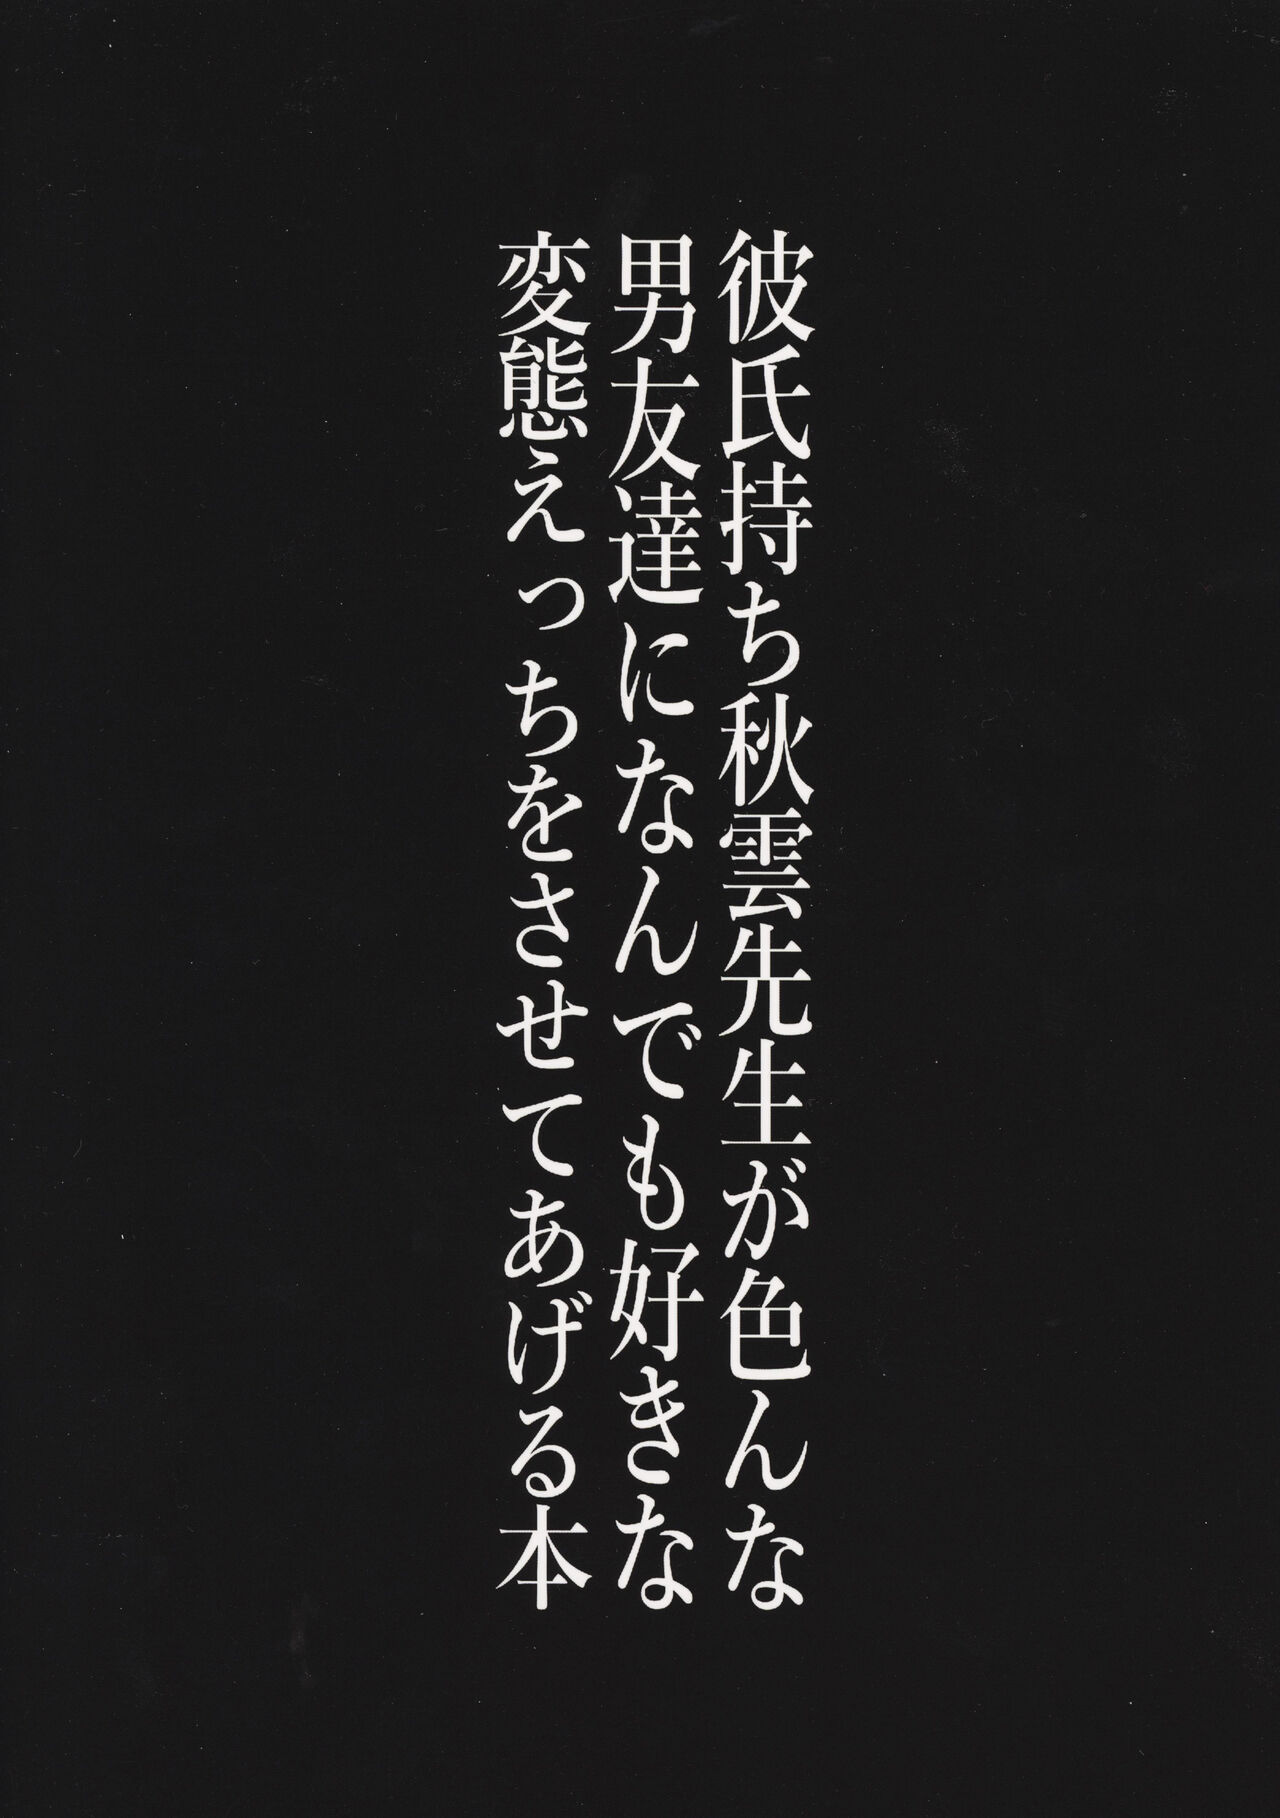 彼氏持ち秋雲先生が色んな
男友達になんでも好きな
変態えっちをさせてあげる本